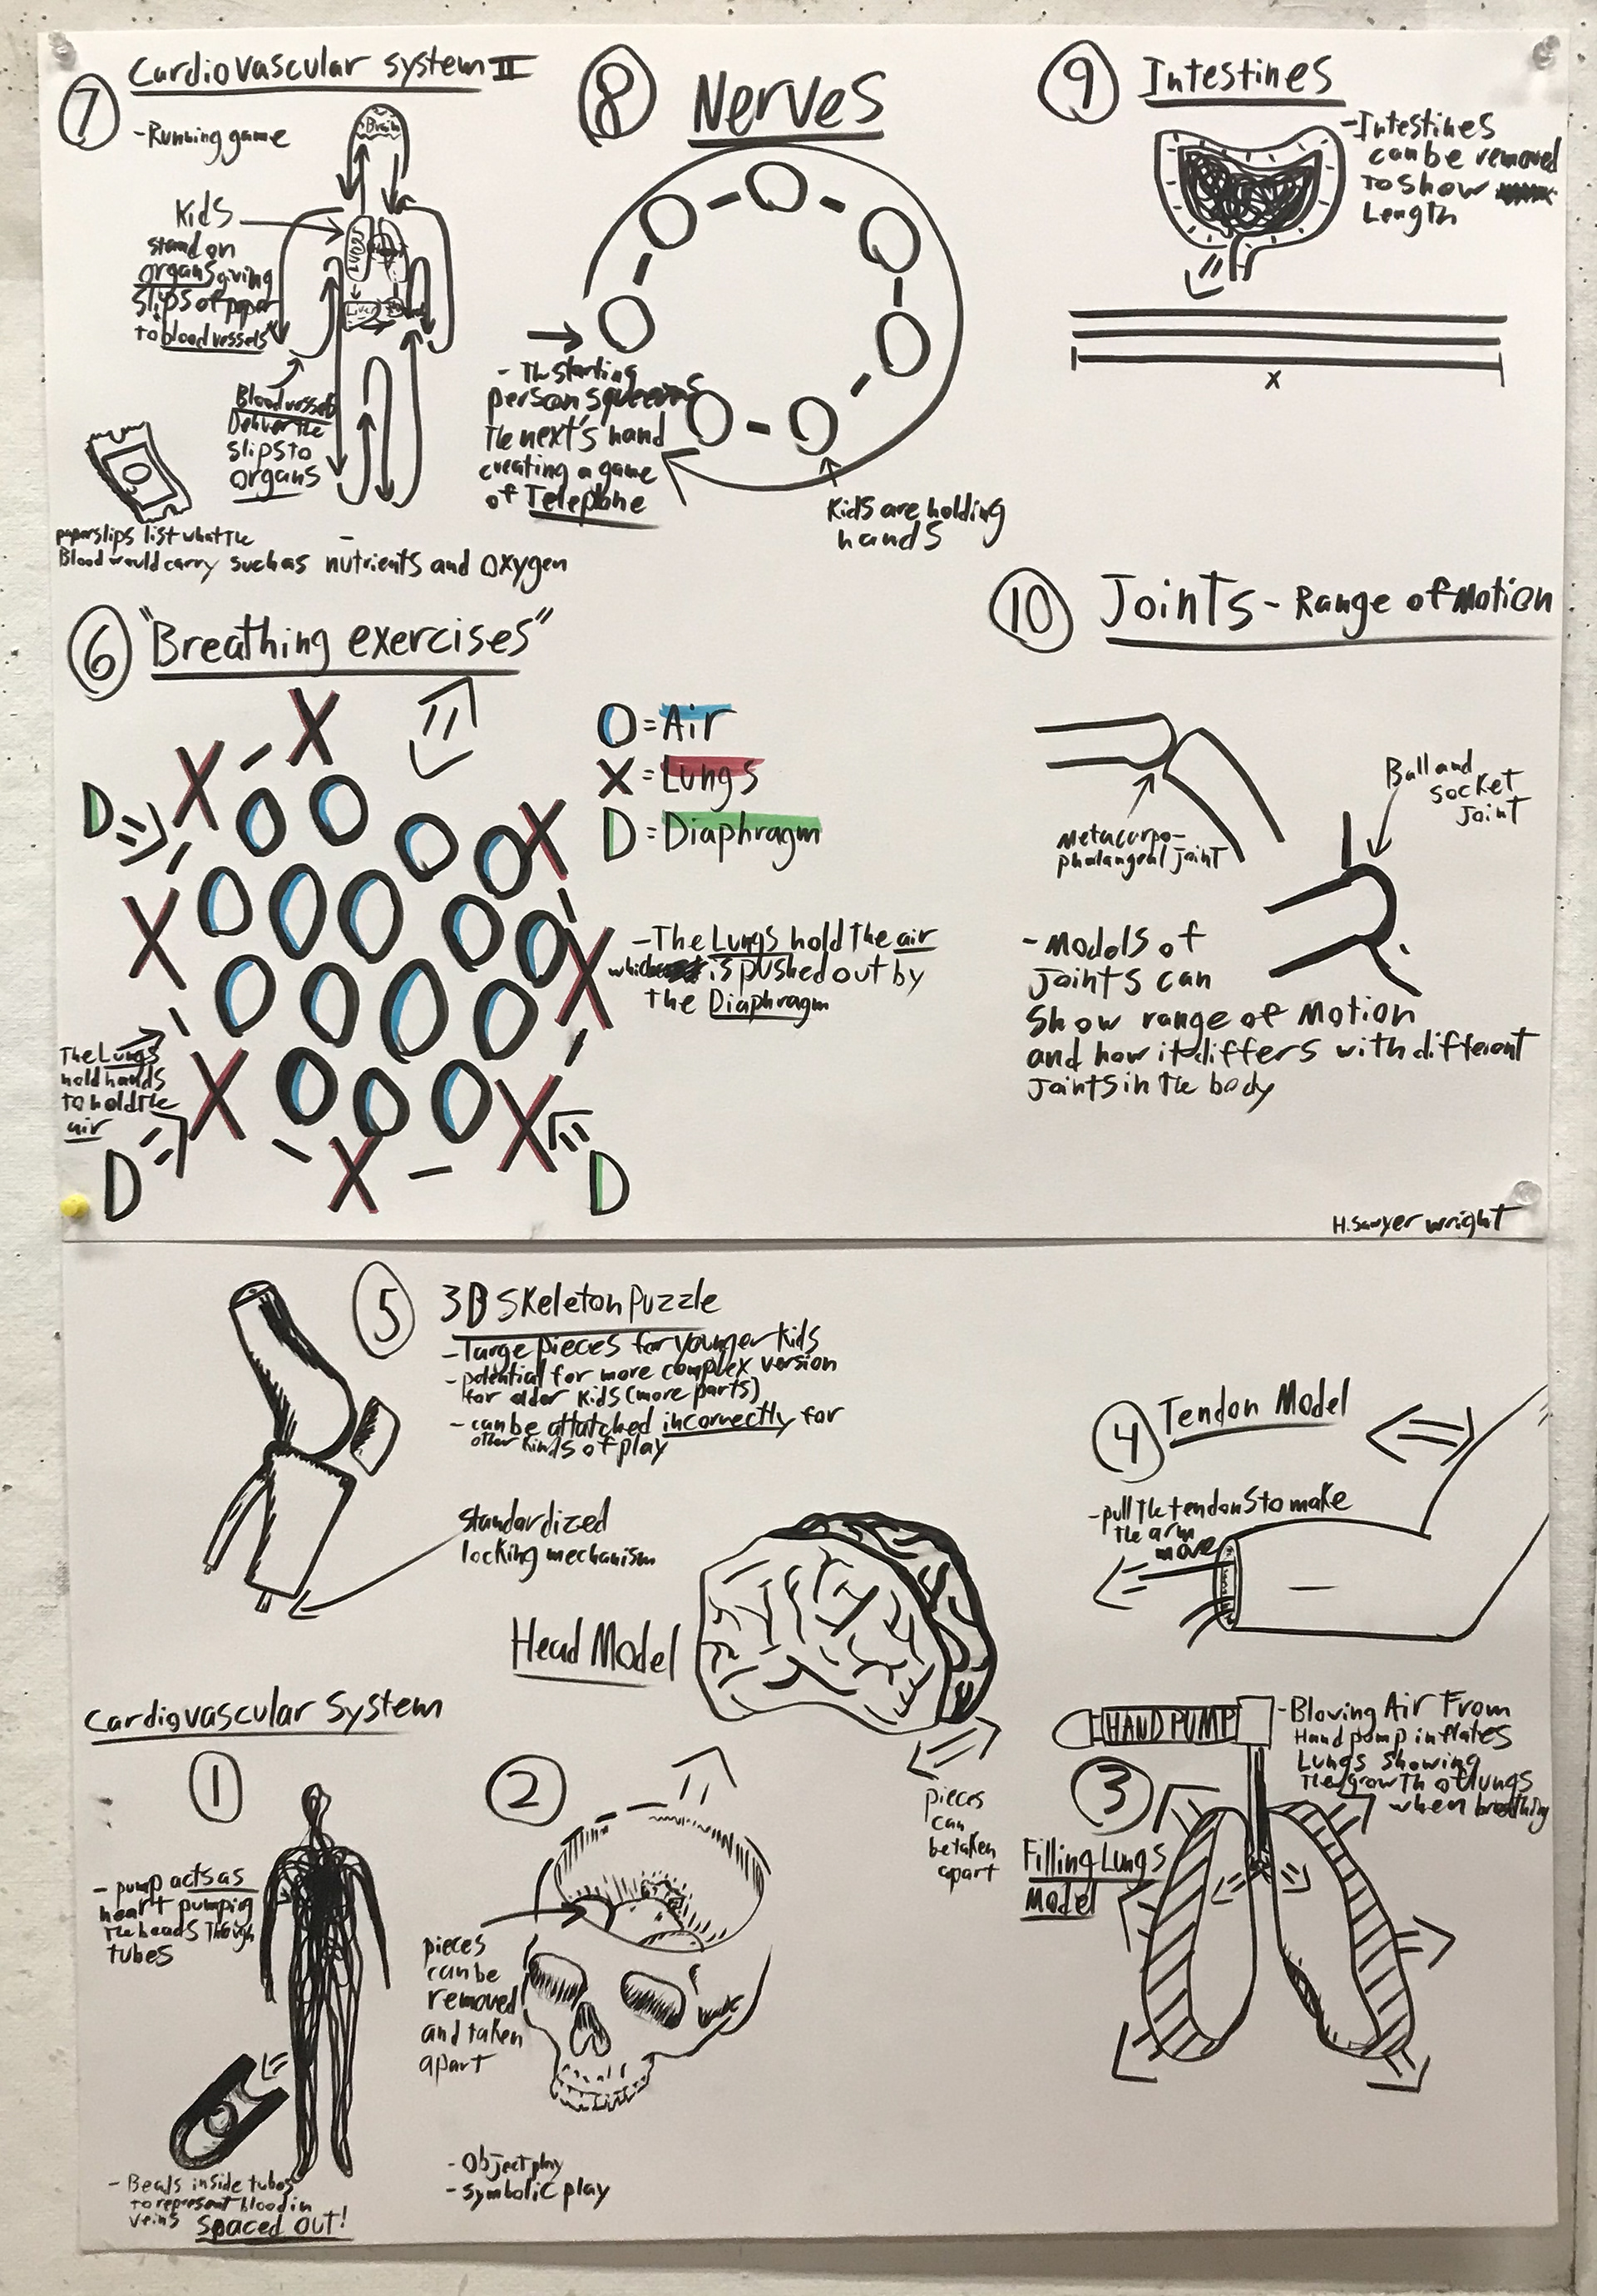 7
Cardiovascular system II
-Running game
Brain
Kids
stand on
organs giving
slips of paper
to blood vessels
Lungs
Liver
Blood vessels
Deliver the
slips to
organs
paper slips list what the
Blood would carry such as nutrients and oxygen
8
Nerves
- The starting
person squeezes
the next's hand
creating a game
of Telephone
Kids are holding
hands
9
Intestines
-Intestines
can be removed
to show
Length
x
6
"Breathing exercises"
O = Air
X = Lungs
D = Diaphragm
X
X
D
X
X
X
X
X
X
X
D
D
-The Lungs hold the air
which is pushed out by
the Diaphragm
The Lungs
hold hands
to hold the
air
10
Joints - Range of Motion
Metacarpo-
phalangeal joint
Ball and
socket
joint
- Models of
joints can
show range of motion
and how it differs with different
joints in the body
H. Sawyer Wright
5
3D Skeleton Puzzle
- Large pieces for younger kids
- potential for more complex version
for older kids (more parts)
- can be attatched incorrectly for
other kinds of play
standardized
locking mechanism
4
Tendon Model
-pull the tendons to make
the arm
move
Head Model
pieces
can
be taken
apart
Cardiovascular System
1
- pump acts as
heart pumping
the beads through
tubes
- Beads inside tubes
to represent blood in
veins Spaced out!
2
pieces
can be
removed
and taken
apart
- Object play
- symbolic play
HAND PUMP
-Blowing Air From
Hand pump inflates
Lungs showing
the growth of lungs
when breathing
3
Filling Lungs
Model